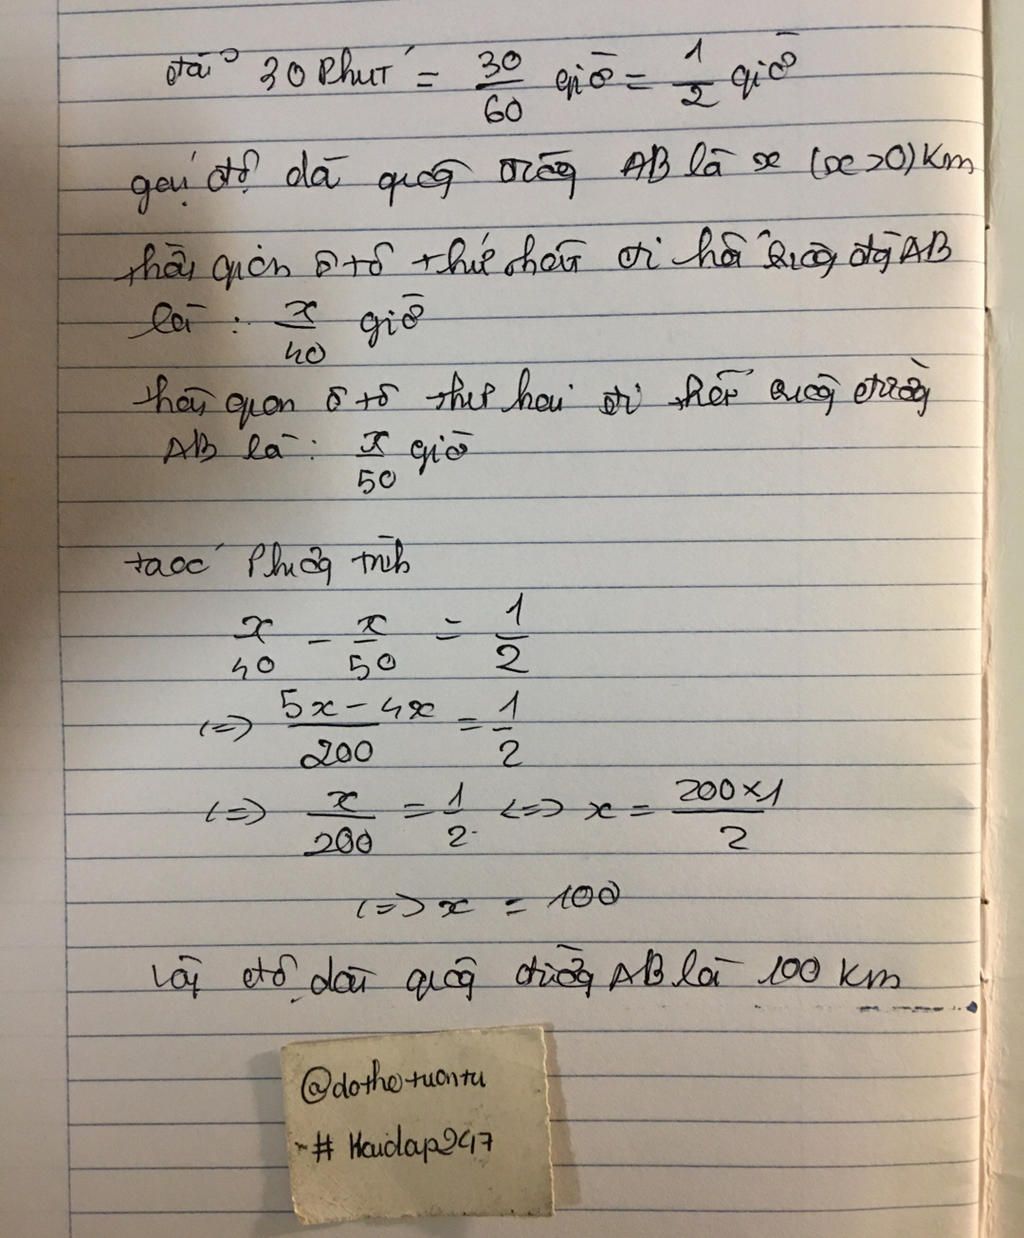 đổi 30 phút = 30/60 giờ = 1/2 giờ
gọi độ dài quãng đường AB là x (x>0) Km
thời gian ô tô thứ nhất đi hết quãng đg AB
là : x/40 giờ
thời gian ô tô thứ hai đi hết quãng đường
AB là : x/50 giờ
ta có phương trình
x/40 - x/50 = 1/2
<=> 5x - 4x/200 = 1/2
<=> x/200 = 1/2 <=> x = 200×1/2
<=> x = 100
Vậy độ dài quãng đường AB là 100 Km
@dothetuantu
# Hoidap247